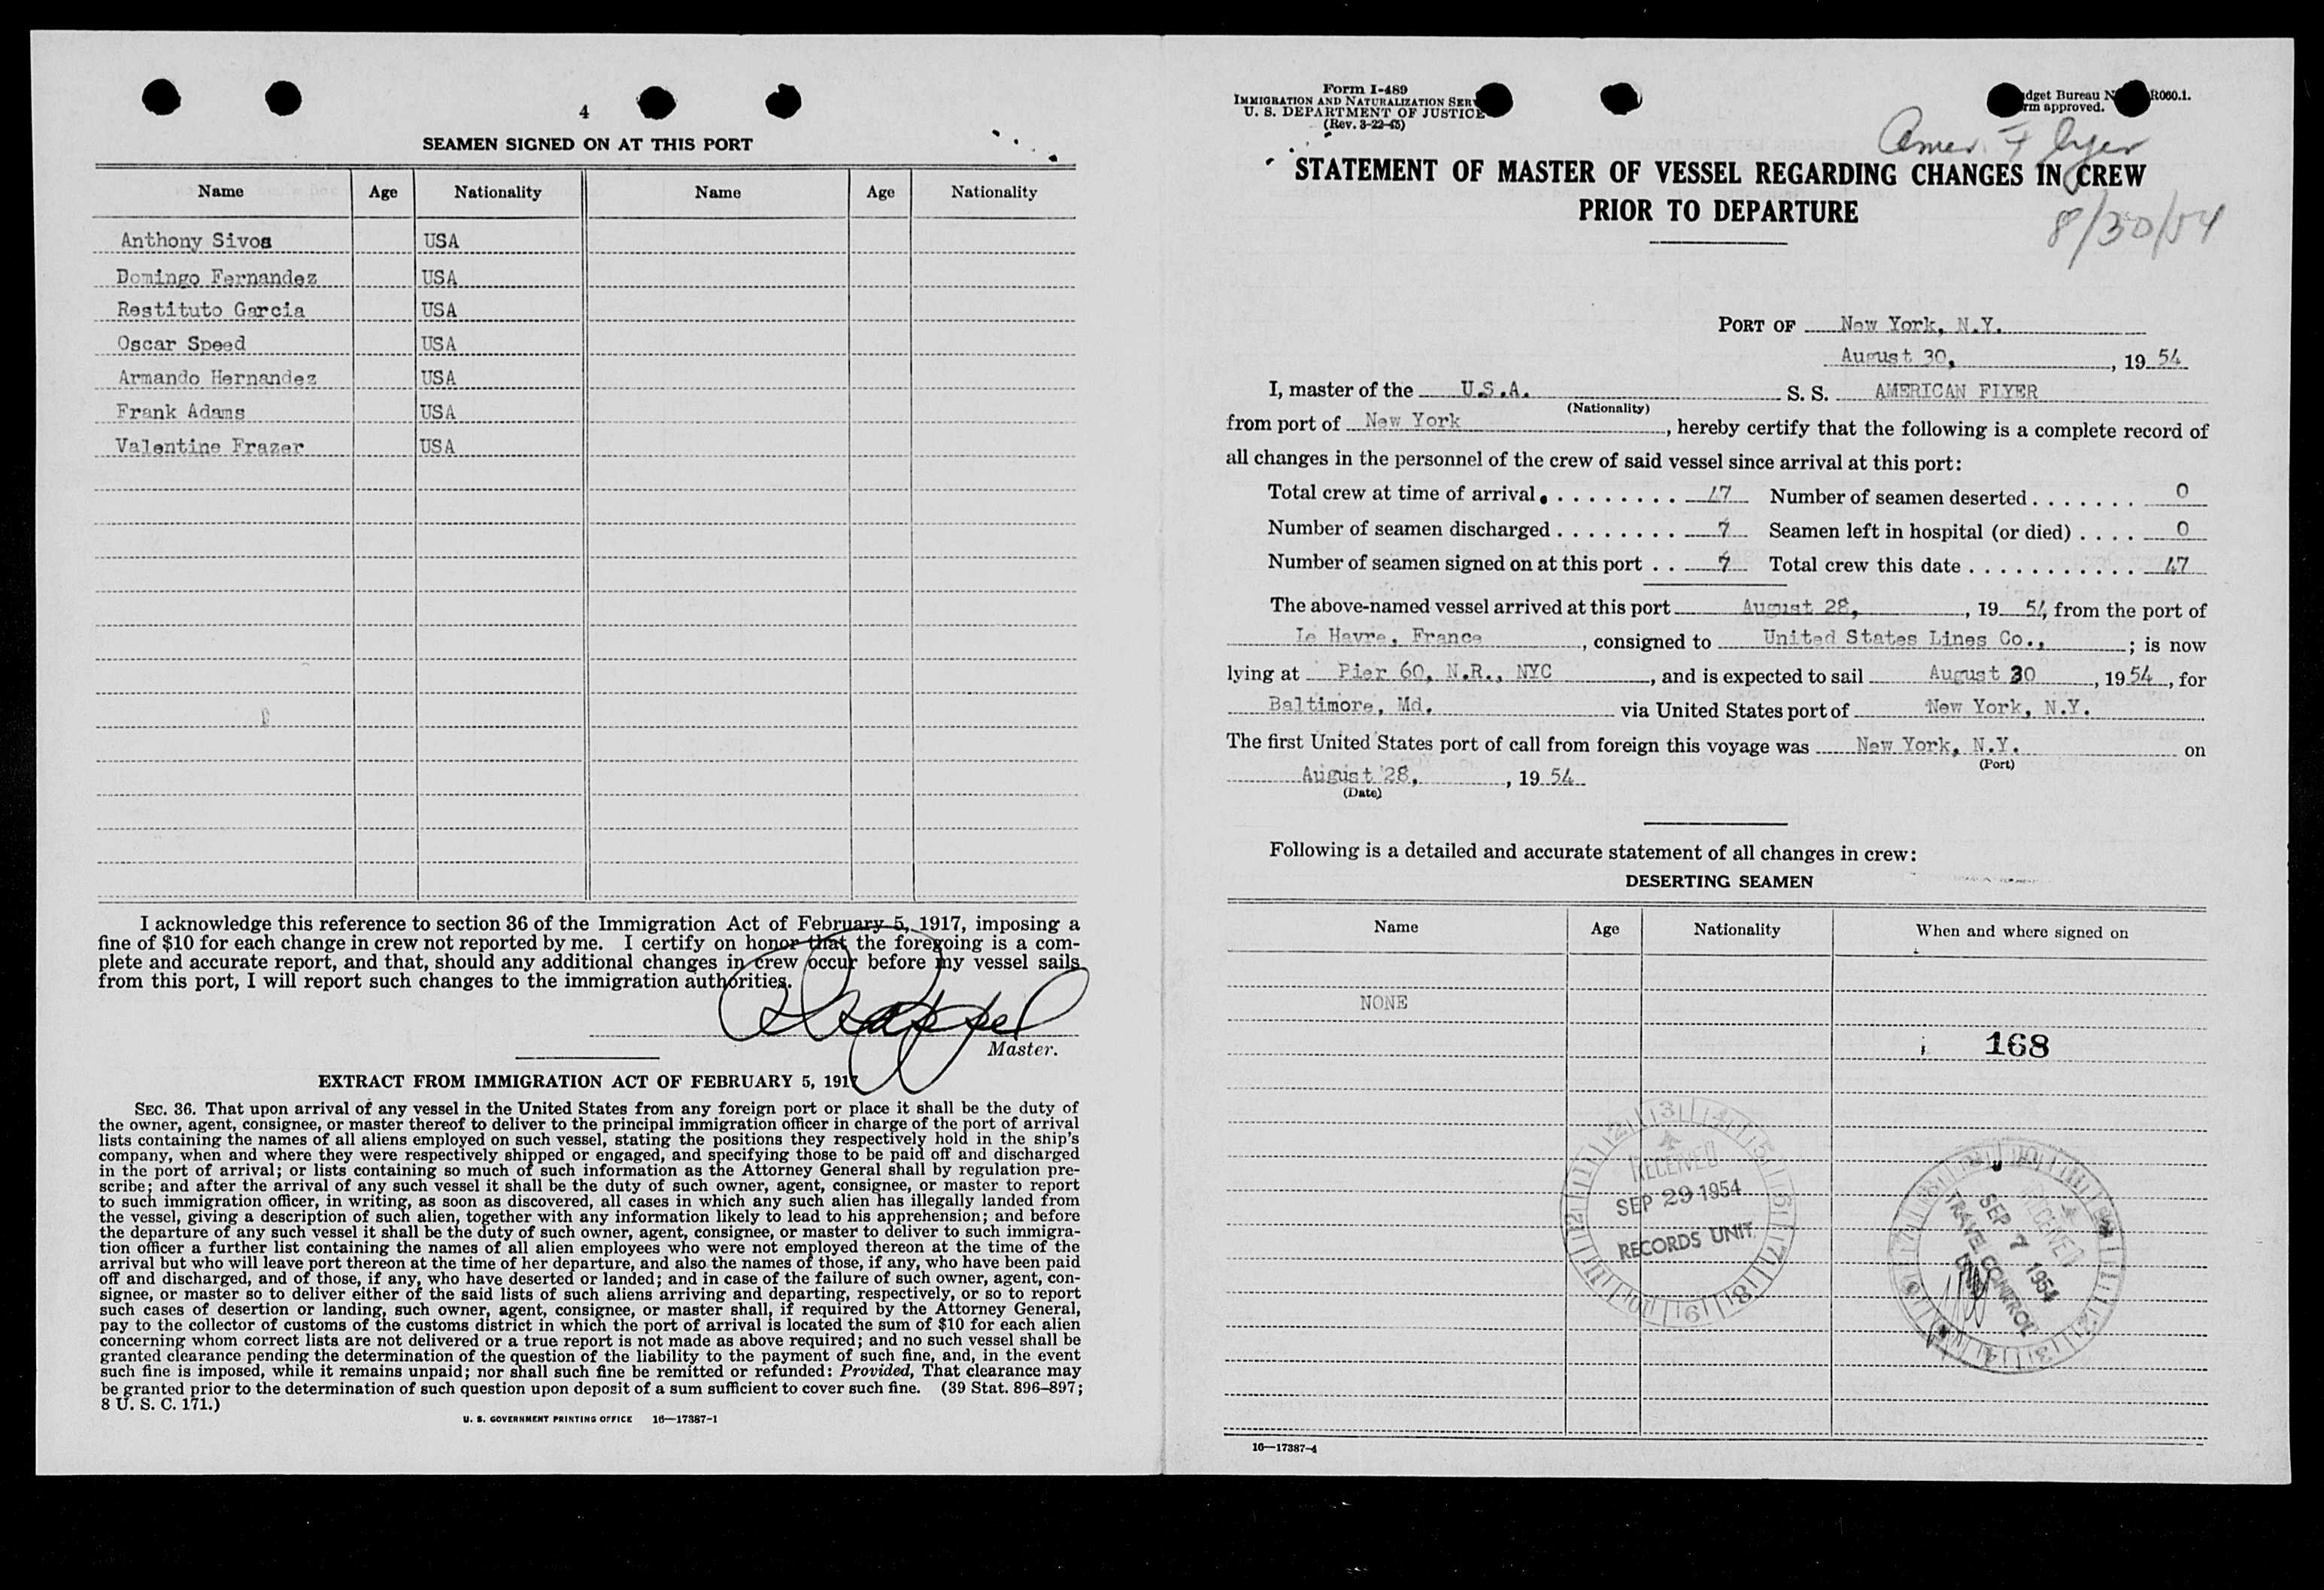 4
SEAMEN SIGNED ON AT THIS PORT
Name Age Nationality Name Age Nationality
Anthony Sivos USA
Domingo Fernandez USA
Restituto Garcia USA
Oscar Speed USA
Armando Hernandez USA
Frank Adams USA
Valentine Frazer USA
I acknowledge this reference to section 36 of the Immigration Act of February 5, 1917, imposing a
fine of $10 for each change in crew not reported by me. I certify on honor that the foregoing is a com-
plete and accurate report, and that, should any additional changes in crew occur before my vessel sails
from this port, I will report such changes to the immigration authorities.
Master.
EXTRACT FROM IMMIGRATION ACT OF FEBRUARY 5, 1917
SEC. 36. That upon arrival of any vessel in the United States from any foreign port or place it shall be the duty of
the owner, agent, consignee, or master thereof to deliver to the principal immigration officer in charge of the port of arrival
lists containing the names of all aliens employed on such vessel, stating the positions they respectively hold in the ship's
company, when and where they were respectively shipped or engaged, and specifying those to be paid off and discharged
in the port of arrival; or lists containing so much of such information as the Attorney General shall by regulation pre-
scribe; and after the arrival of any such vessel it shall be the duty of such owner, agent, consignee, or master to report
to such immigration officer, in writing, as soon as discovered, all cases in which any such alien has illegally landed from
the vessel, giving a description of such alien, together with any information likely to lead to his apprehension; and before
the departure of any such vessel it shall be the duty of such owner, agent, consignee, or master to deliver to such immigra-
tion officer a further list containing the names of all alien employees who were not employed thereon at the time of the
arrival but who will leave port thereon at the time of her departure, and also the names of those, if any, who have been paid
off and discharged, and of those, if any, who have deserted or landed; and in case of the failure of such owner, agent, con-
signee, or master so to deliver either of the said lists of such aliens arriving and departing, respectively, or so to report
such cases of desertion or landing, such owner, agent, consignee, or master shall, if required by the Attorney General,
pay to the collector of customs of the customs district in which the port of arrival is located the sum of $10 for each alien
concerning whom correct lists are not delivered or a true report is not made as above required; and no such vessel shall be
granted clearance pending the determination of the question of the liability to the payment of such fine, and, in the event
such fine is imposed, while it remains unpaid; nor shall such fine be remitted or refunded: Provided, That clearance may
be granted prior to the determination of such question upon deposit of a sum sufficient to cover such fine. (39 Stat. 896–897;
8 U. S. C. 171.)
U. S. GOVERNMENT PRINTING OFFICE 16—17387-1
Form I-489
IMMIGRATION AND NATURALIZATION SER
U. S. DEPARTMENT OF JUSTICE
(Rev. 3-22-45)
dget Bureau N R060.1.
rm approved.
Amer. Flyer
STATEMENT OF MASTER OF VESSEL REGARDING CHANGES IN CREW
PRIOR TO DEPARTURE
8/30/54
PORT OF New York, N.Y.
August 30, , 19 54
I, master of the U.S.A. S. S. AMERICAN FLYER
(Nationality)
from port of New York , hereby certify that the following is a complete record of
all changes in the personnel of the crew of said vessel since arrival at this port:
Total crew at time of arrival 47 Number of seamen deserted 0
Number of seamen discharged 7 Seamen left in hospital (or died) 0
Number of seamen signed on at this port 7 Total crew this date 47
The above-named vessel arrived at this port August 28, , 19 54, from the port of
Le Havre, France , consigned to United States Lines Co., ; is now
lying at Pier 60, N.R., NYC , and is expected to sail August 30 , 19 54 , for
Baltimore, Md. via United States port of New York, N.Y.
The first United States port of call from foreign this voyage was New York, N.Y. on
(Port)
August 28, , 19 54
(Date)
Following is a detailed and accurate statement of all changes in crew:
DESERTING SEAMEN
Name Age Nationality When and where signed on
NONE
168
RECEIVED
SEP 29 1954
RECORDS UNIT
RECEIVED
SEP 7 1954
TRAVEL CONTROL
16—17387-4